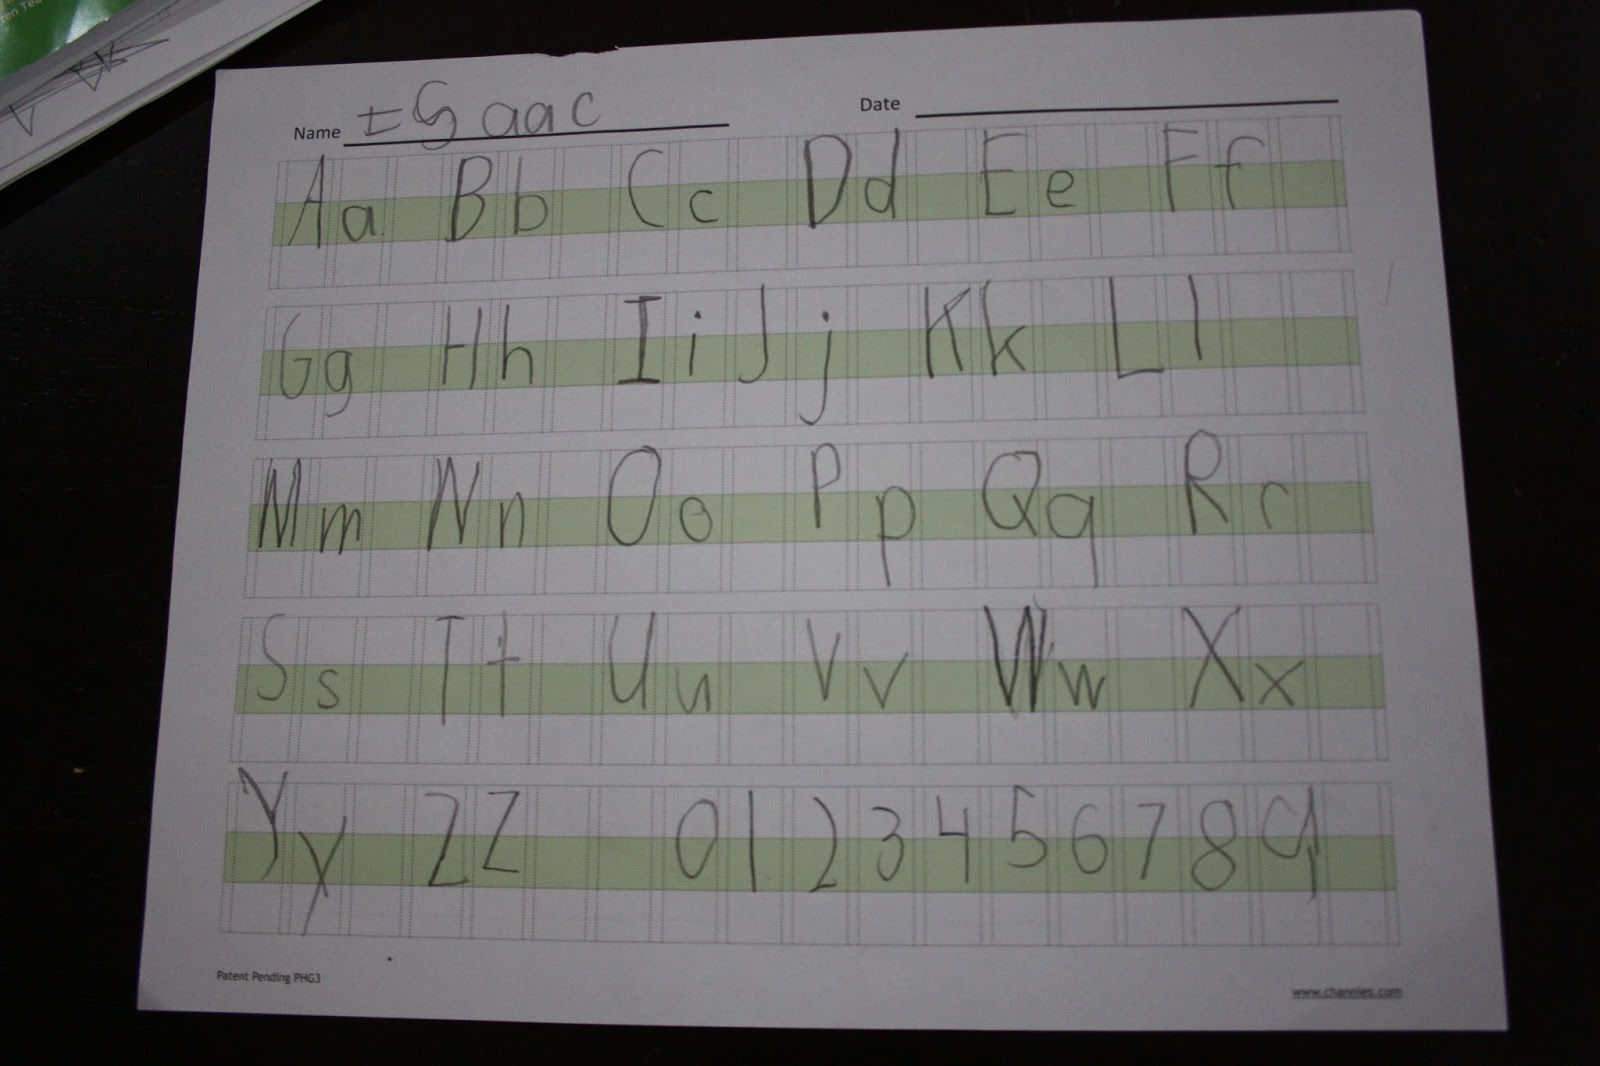 Name Isaac Date
Aa Bb Cc Dd Ee Ff
Gg Hh Ii Jj Kk Ll
Mm Nn Oo Pp Qq Rr
Ss Tt Uu Vv Ww Xx
Yy Zz 0 1 2 3 4 5 6 7 8 9
Patent Pending PHG3 www.channies.com